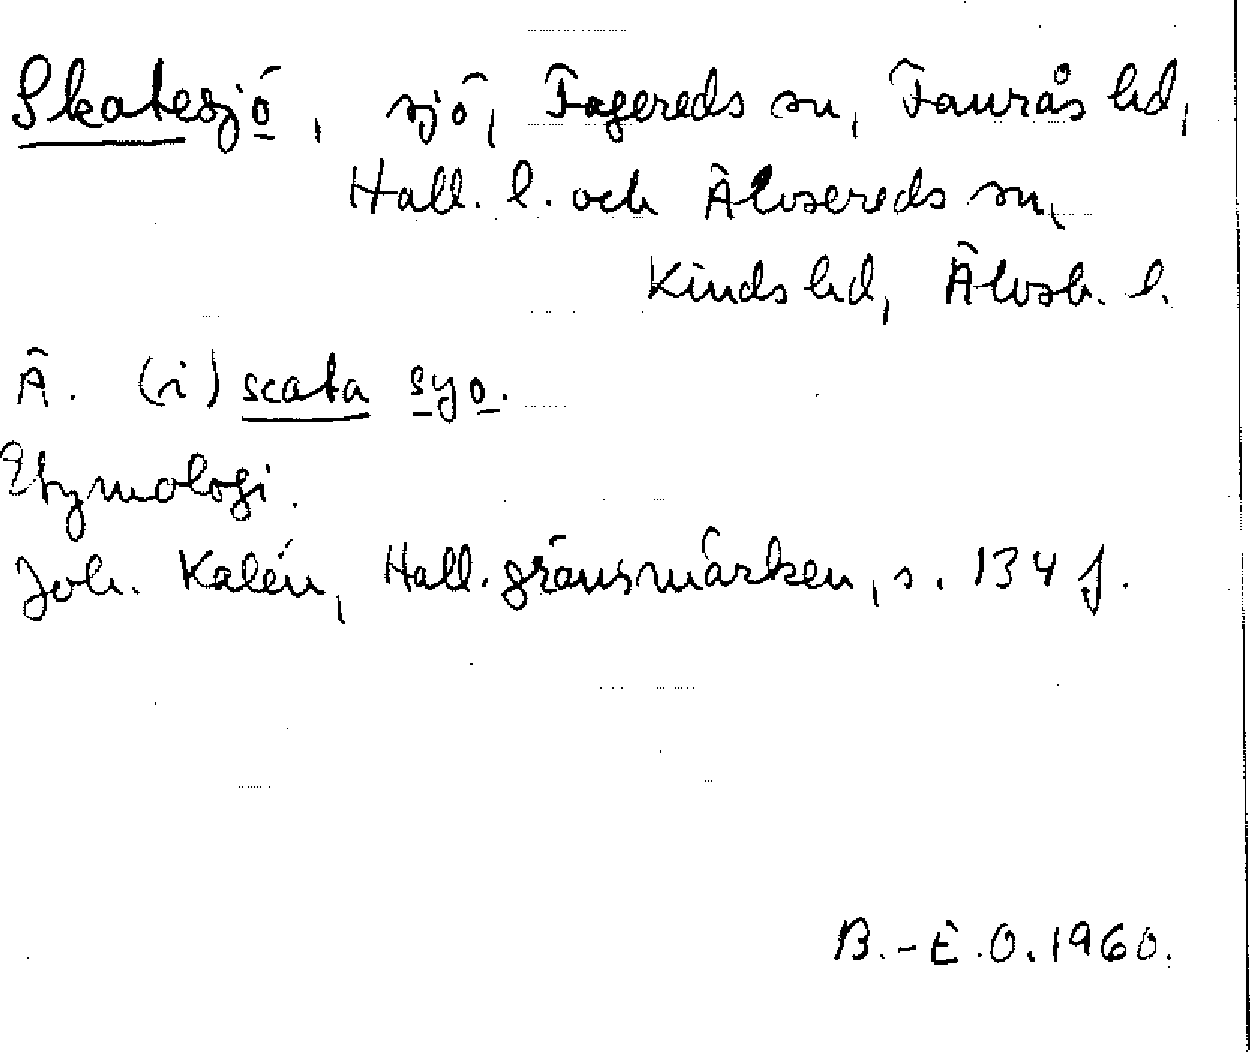 Skatesjö, sjö, Fagereds sn, Faurås hd,
Hall. l. och Älvsereds sn,
Kinds hd, Älvsb. l.
Ä. (i) scata syo.
Etymologi.
Joh. Kalén, Hall. gränsmärken, s. 134 f.
B.-E.O. 1960.